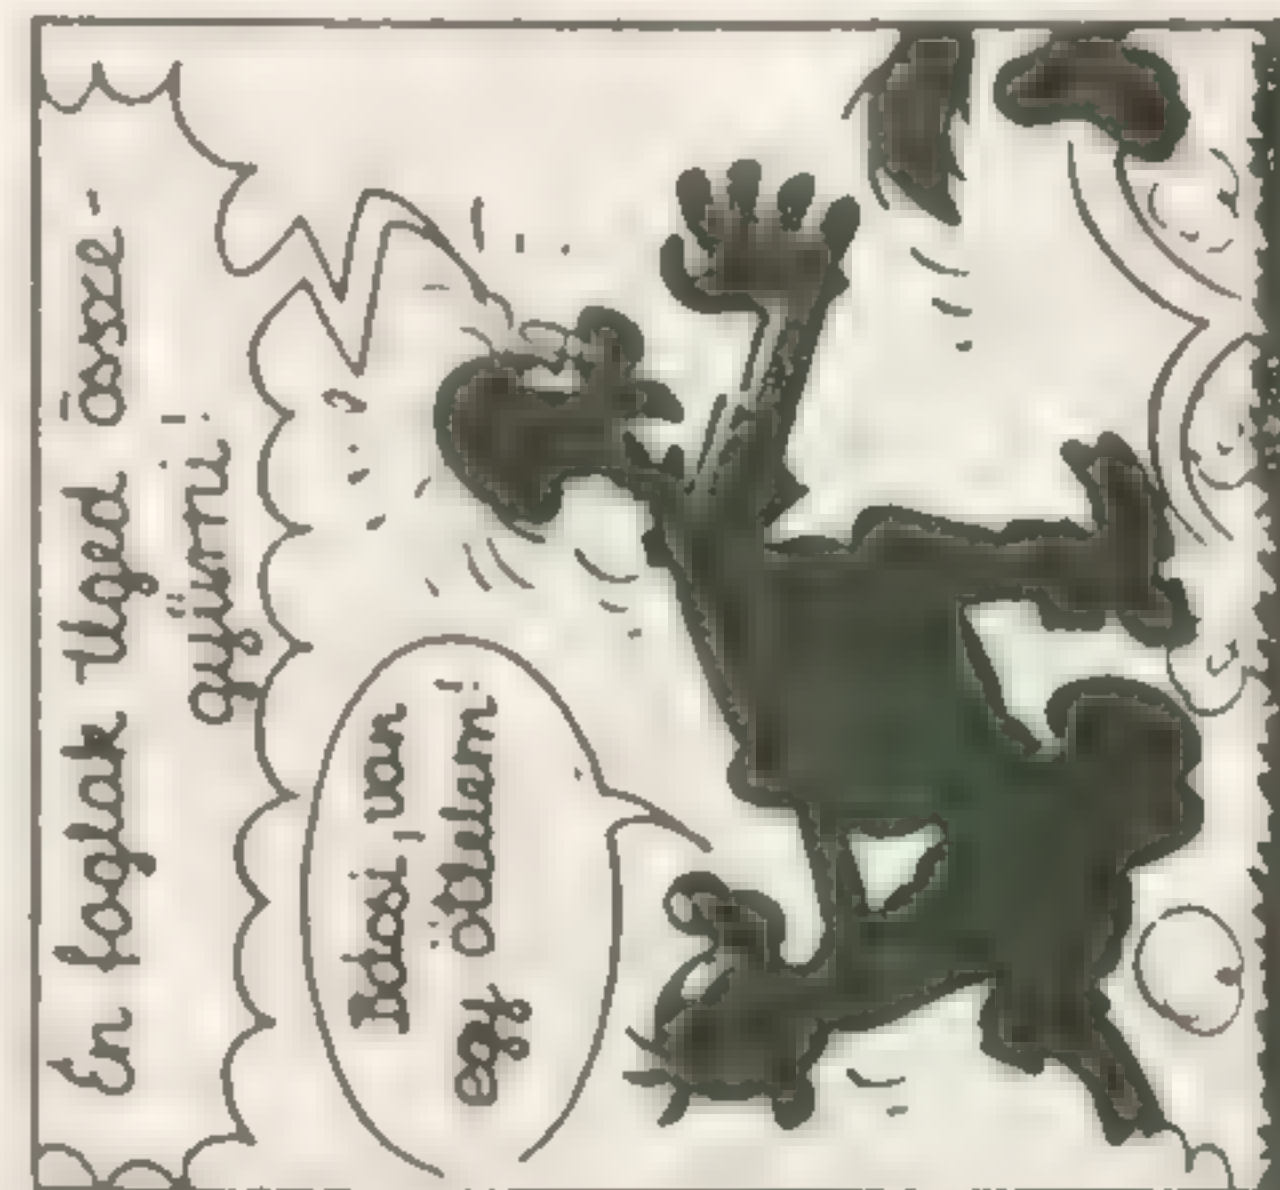 Én foglak téged össze-
gyűrni!
Ddosi, van
egy ötletem!